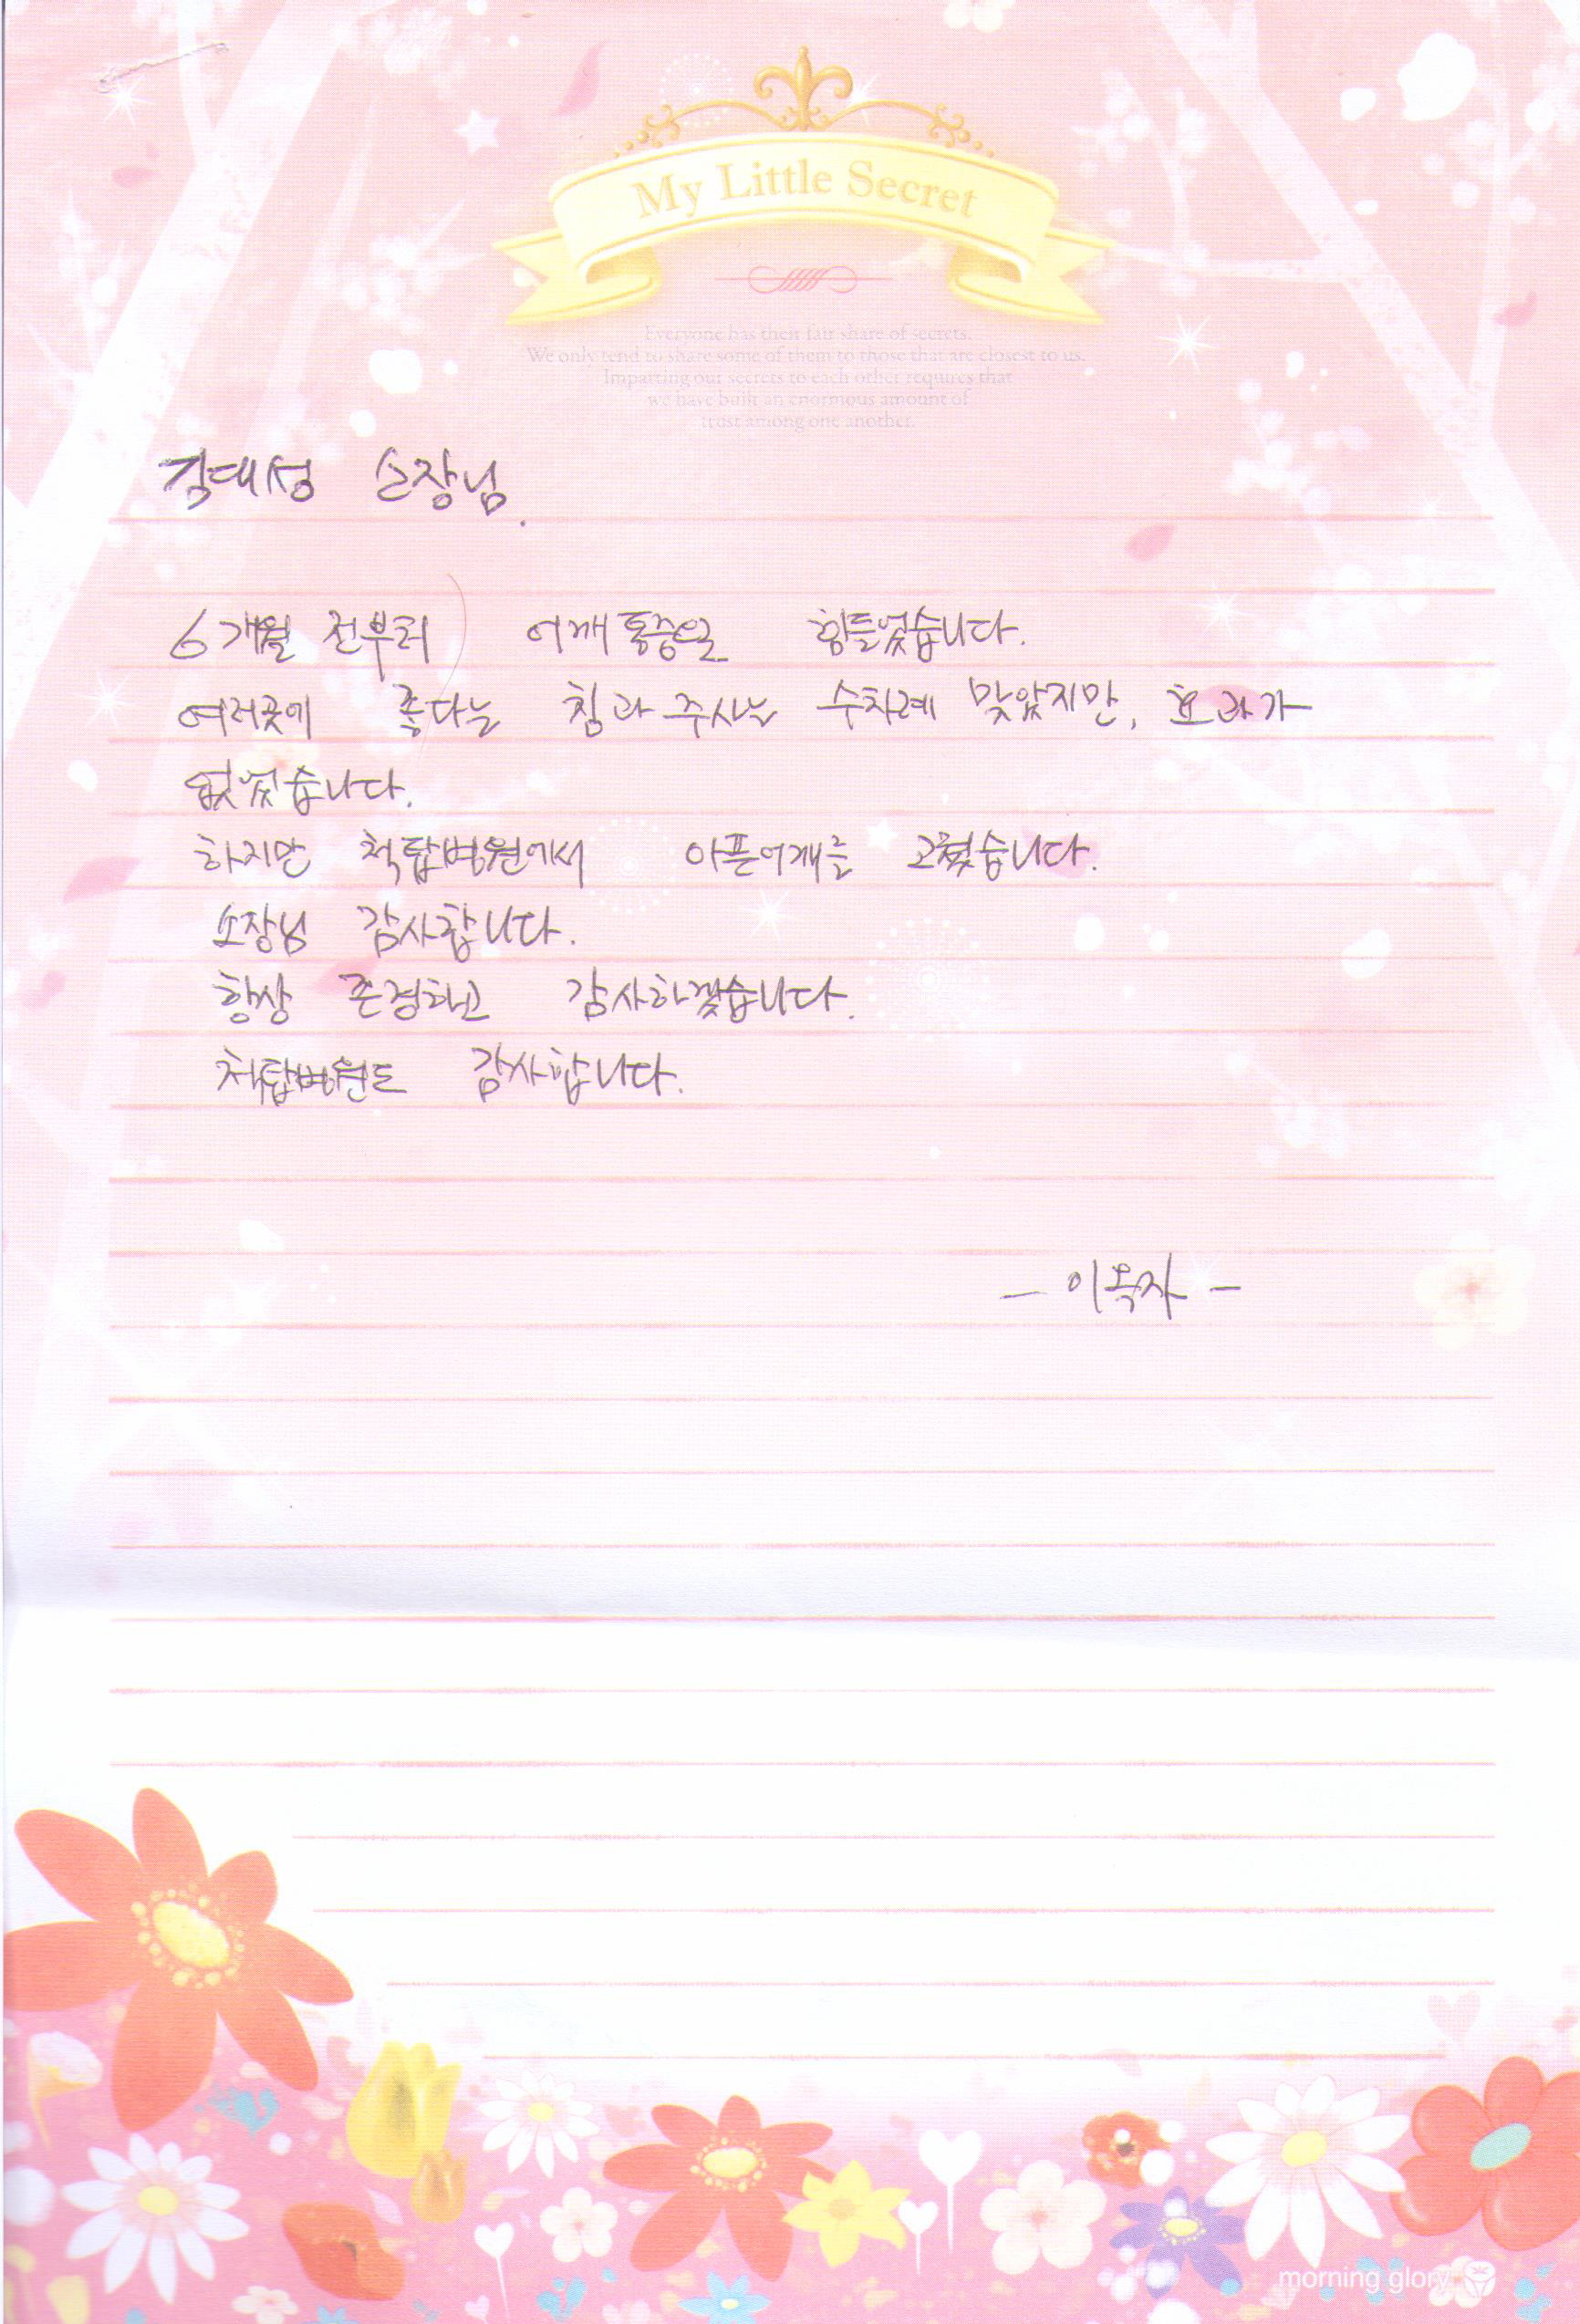 My Little Secret
Everyone has their fair share of secrets.
We only tend to share some of them to those that are closest to us.
Imparting our secrets to each other requires that
we have built an enormous amount of
trust among one another.
김대성 소장님.
6개월 전부터 어깨통증으로 힘들었습니다.
여러곳에 좋다는 침과 주사는 수차례 맞았지만, 효과가
없었습니다.
하지만 척탑병원에서 아픈어깨를 고쳤습니다.
소장님 감사합니다.
항상 존경하고 감사하겠습니다.
척탑병원도 감사합니다.
- 이옥자 -
morning glory